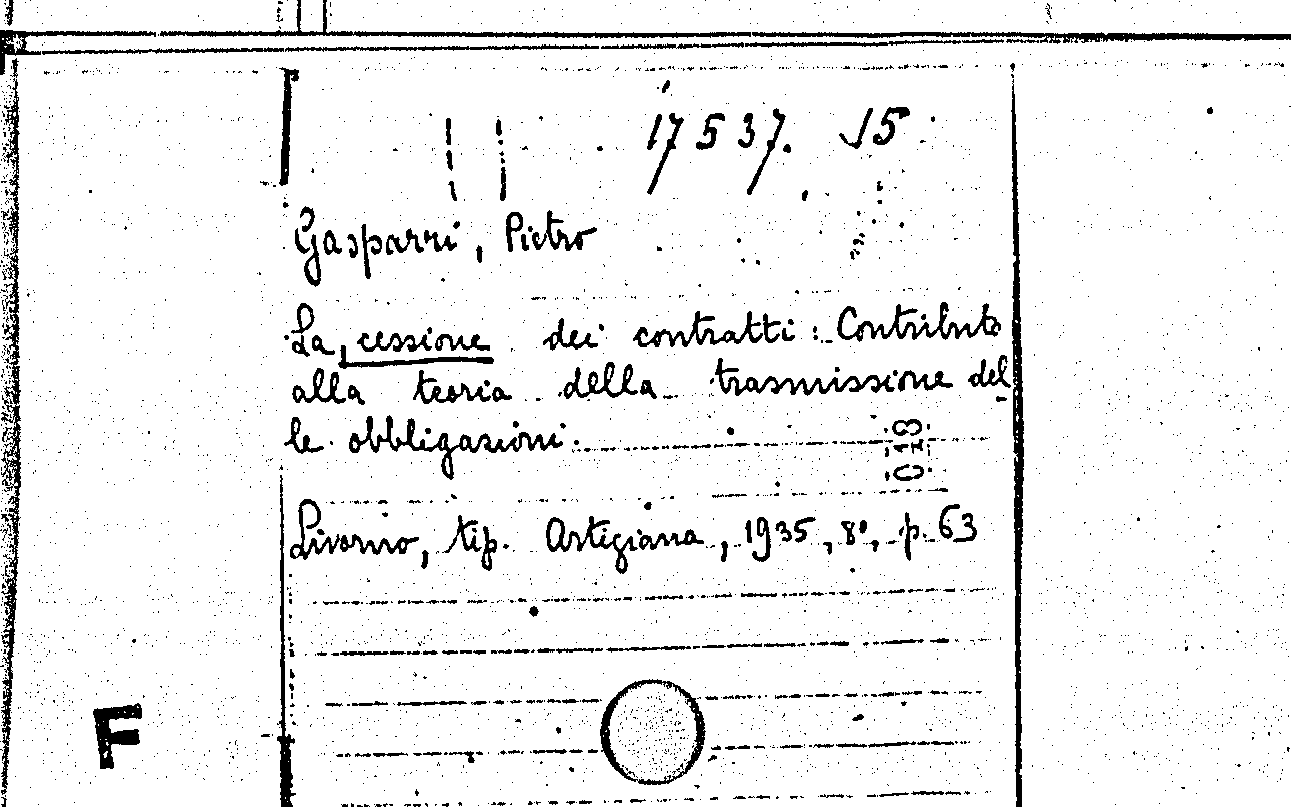 17537. 15
Gasparri, Pietro
La cessione dei contratti: Contributo
alla teoria della trasmissione del
le obbligazioni.
C13
Livorno, tip. Artigiana, 1935, 8°, p. 63
F